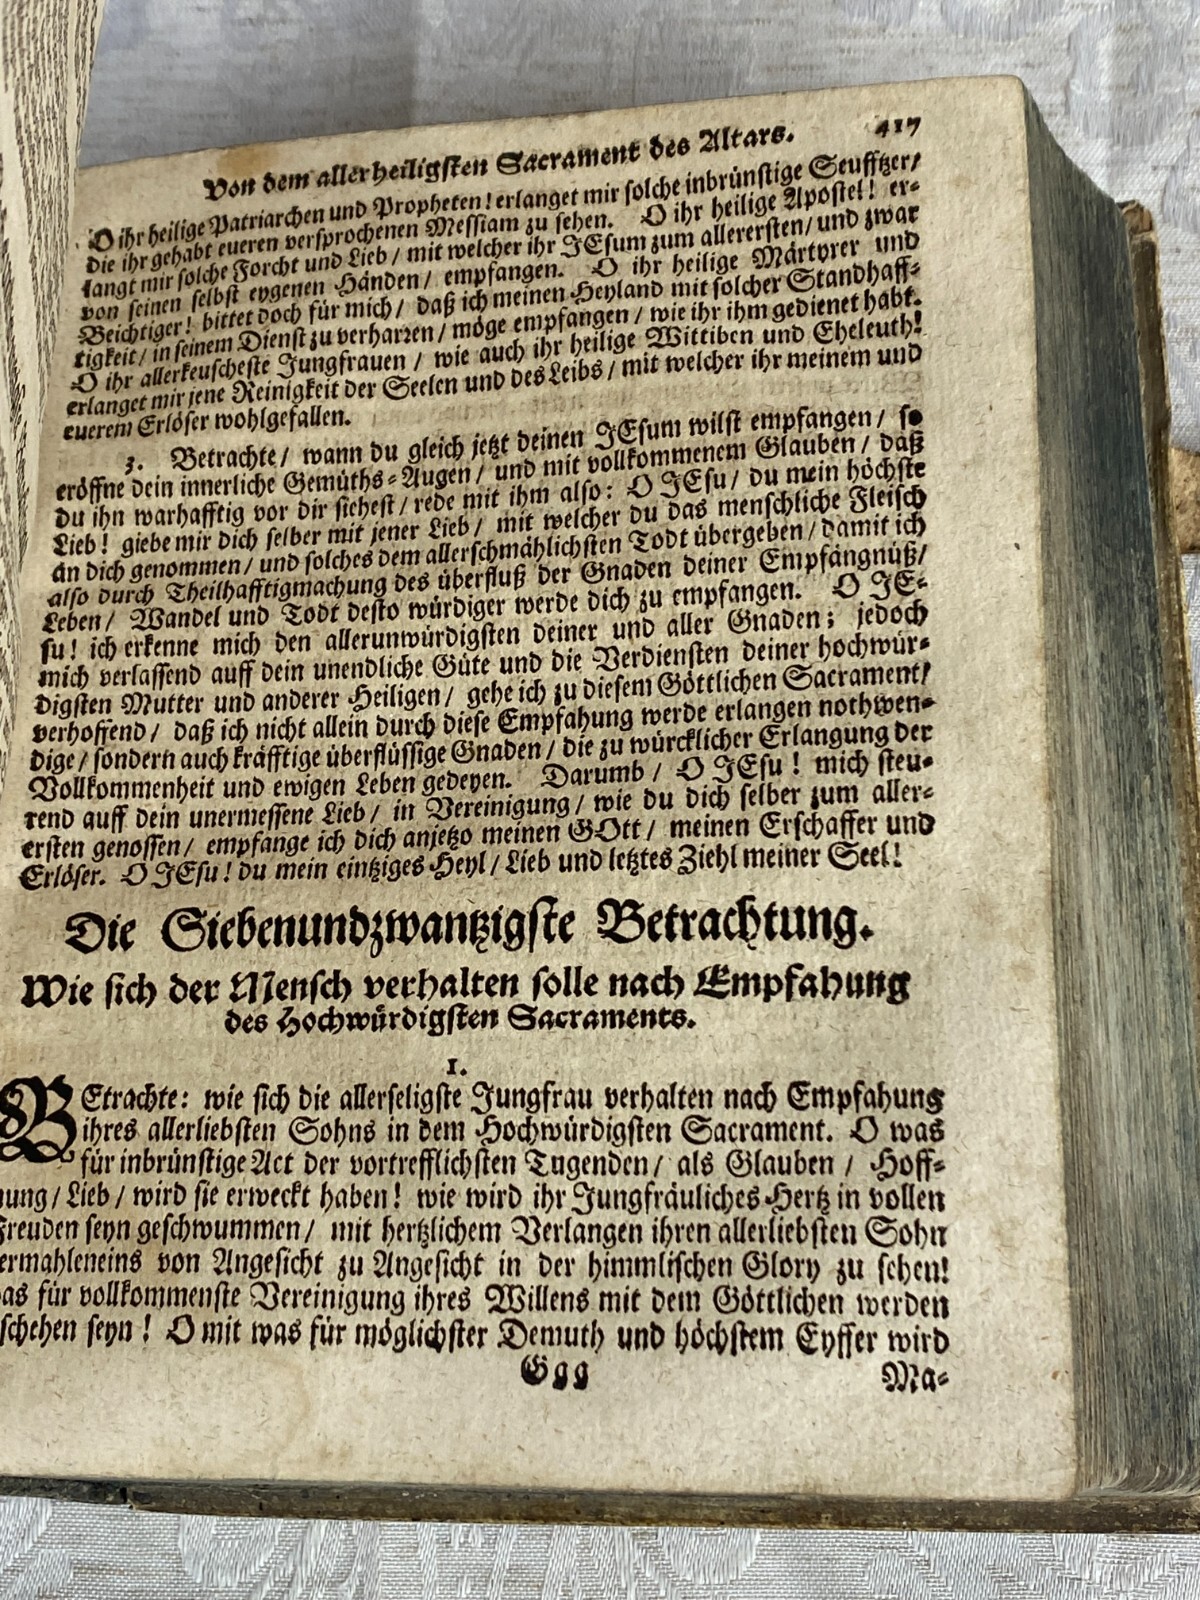 Von dem allerheiligsten Sacrament des Altars. 417
O ihr heilige Patriarchen und Propheten! erlanget mir solche inbrünstige Seufftzer/
die ihr gehabt eueren versprochenen Messiam zu sehen. O ihr heilige Apostel! er-
langt mir solche Forcht und Lieb/ mit welcher ihr JEsum zum allerersten/ und zwar
von seinen selbst eygenen Händen/ empfangen. O ihr heilige Märtyrer und
Beichtiger! bittet doch für mich/ daß ich meinen Heyland mit solcher Standhaff-
tigkeit/ in seinem Dienst zu verharren/ möge empfangen/ wie ihr ihm gedienet habt.
O ihr allerkeuscheste Jungfrauen/ wie auch ihr heilige Wittiben und Eheleuth!
erlanget mir jene Reinigkeit der Seelen und des Leibs/ mit welcher ihr meinem und
euerem Erlöser wohlgefallen.
3. Betrachte/ wann du gleich jetzt deinen JEsum wilst empfangen/ so
eröffne dein innerliche Gemüths-Augen/ und mit vollkommenem Glauben/ daß
du ihn warhafftig vor dir siehest/ rede mit ihm also: O JEsu/ du mein höchste
Lieb! giebe mir dich selber mit jener Lieb/ mit welcher du das menschliche Fleisch
an dich genommen/ und solches dem allerschmählichsten Todt übergeben/ damit ich
also durch Theilhafftigmachung des überfluß der Gnaden deiner Empfängnüß/
Leben/ Wandel und Todt desto würdiger werde dich zu empfangen. O JE-
su! ich erkenne mich den allerunwürdigsten deiner und aller Gnaden; jedoch
mich verlassend auff dein unendliche Güte und die Verdiensten deiner hochwür-
digsten Mutter und anderer Heiligen/ gehe ich zu diesem Göttlichen Sacrament/
verhoffend/ daß ich nicht allein durch diese Empfahung werde erlangen nothwen-
dige/ sondern auch kräfftige überflüssige Gnaden/ die zu würcklicher Erlangung der
Vollkommenheit und ewigen Leben gedeyen. Darumb/ O JEsu! mich steu-
rend auff dein unermessene Lieb/ in Vereinigung/ wie du dich selber zum aller-
ersten genossen/ empfange ich dich anjetzo meinen GOtt/ meinen Erschaffer und
Erlöser. O JEsu! du mein eintziges Heyl/ Lieb und letztes Ziehl meiner Seel!
Die Siebenundzwantzigste Betrachtung.
Wie sich der Mensch verhalten solle nach Empfahung
des Hochwürdigsten Sacraments.
1.
BEtrachte: wie sich die allerseligste Jungfrau verhalten nach Empfahung
ihres allerliebsten Sohns in dem Hochwürdigsten Sacrament. O was
für inbrünstige Act der vortrefflichsten Tugenden/ als Glauben/ Hoff-
nung/ Lieb/ wird sie erweckt haben! wie wird ihr Jungfräuliches Hertz in vollen
Freuden seyn geschwummen/ mit hertzlichem Verlangen ihren allerliebsten Sohn
ermahleneins von Angesicht zu Angesicht in der himmlischen Glory zu sehen!
as für vollkommenste Vereinigung ihres Willens mit dem Göttlichen werden
schehen seyn! O mit was für möglichster Demuth und höchstem Eyffer wird
Ggg Ma-